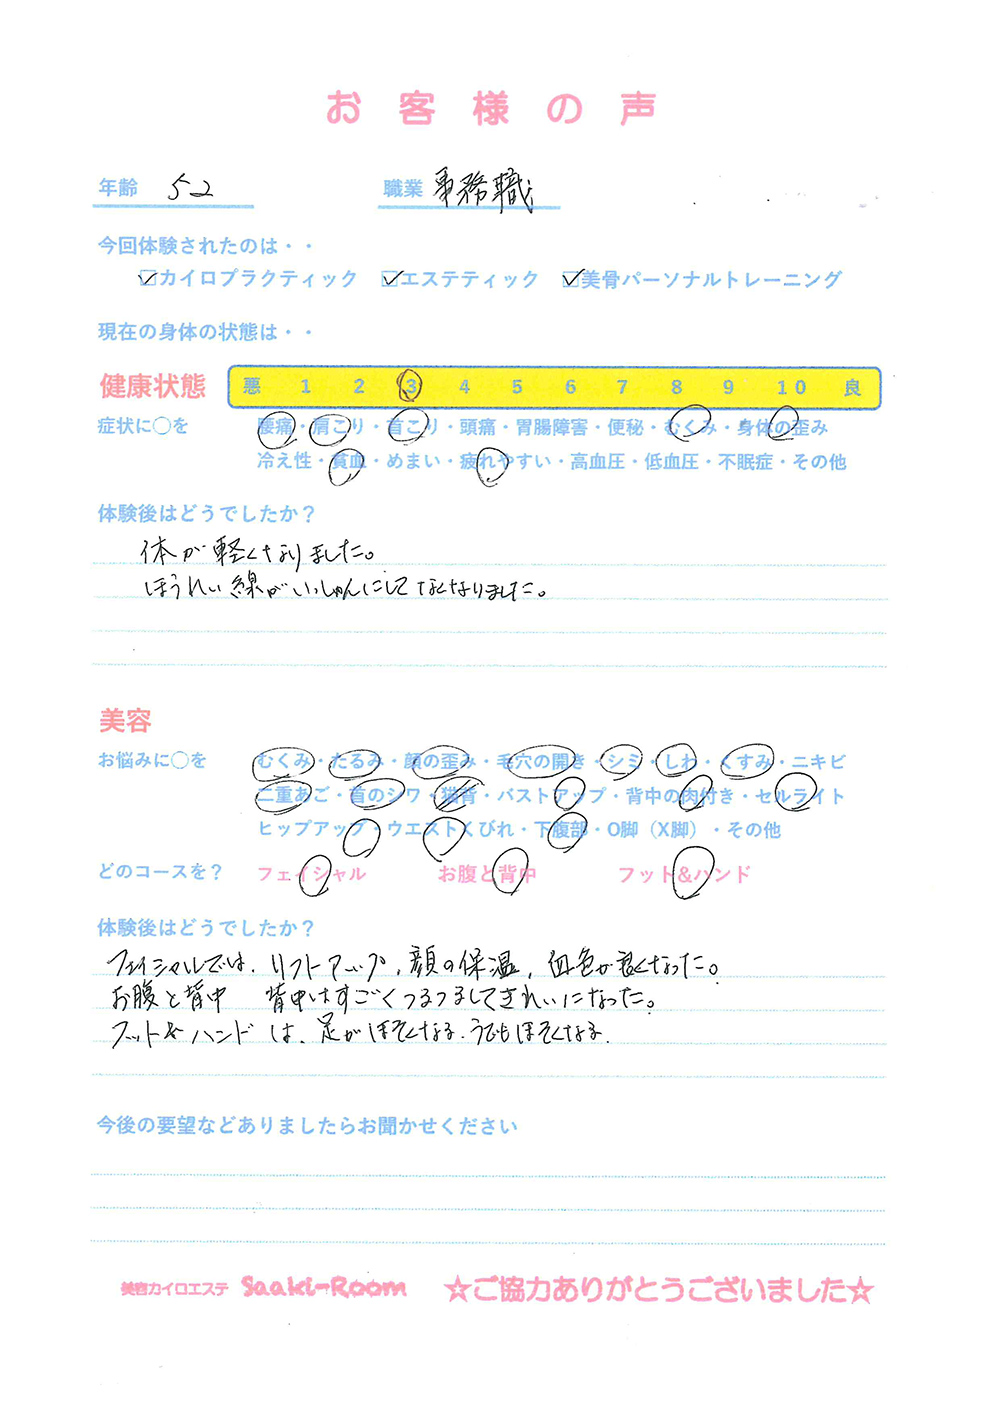 お客様の声
年齢 52 職業 事務職
今回体験されたのは・・
☑カイロプラクティック ☑エステティック ☑美骨パーソナルトレーニング
現在の身体の状態は・・
健康状態 悪 1 2 3 4 5 6 7 8 9 10 良
症状に○を 腰痛・肩こり・首こり・頭痛・胃腸障害・便秘・むくみ・身体の歪み
冷え性・貧血・めまい・疲れやすい・高血圧・低血圧・不眠症・その他
体験後はどうでしたか？
体が軽くなりました。
ほうれい線がいっしゅんにしてなくなりました。
美容
お悩みに○を むくみ・たるみ・顔の歪み・毛穴の開き・シミ・しわ・くすみ・ニキビ
二重あご・首のシワ・猫背・バストアップ・背中の肉付き・セルライト
ヒップアップ・ウエストくびれ・下腹部・O脚（X脚）・その他
どのコースを？ フェイシャル お腹と背中 フット&ハンド
体験後はどうでしたか？
フェイシャルでは、リフトアップ、顔の保温、血色が良くなった。
お腹と背中 背中はすごくつるつるしてきれいになった。
フット&ハンドは、足がほそくなる、うでもほそくなる。
今後の要望などありましたらお聞かせください
美容カイロエステ Saaki-Room ☆ご協力ありがとうございました☆